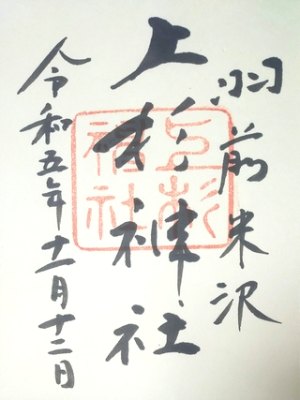 羽前米沢
上杉神社
上杉
神社
令和五年十一月十二日